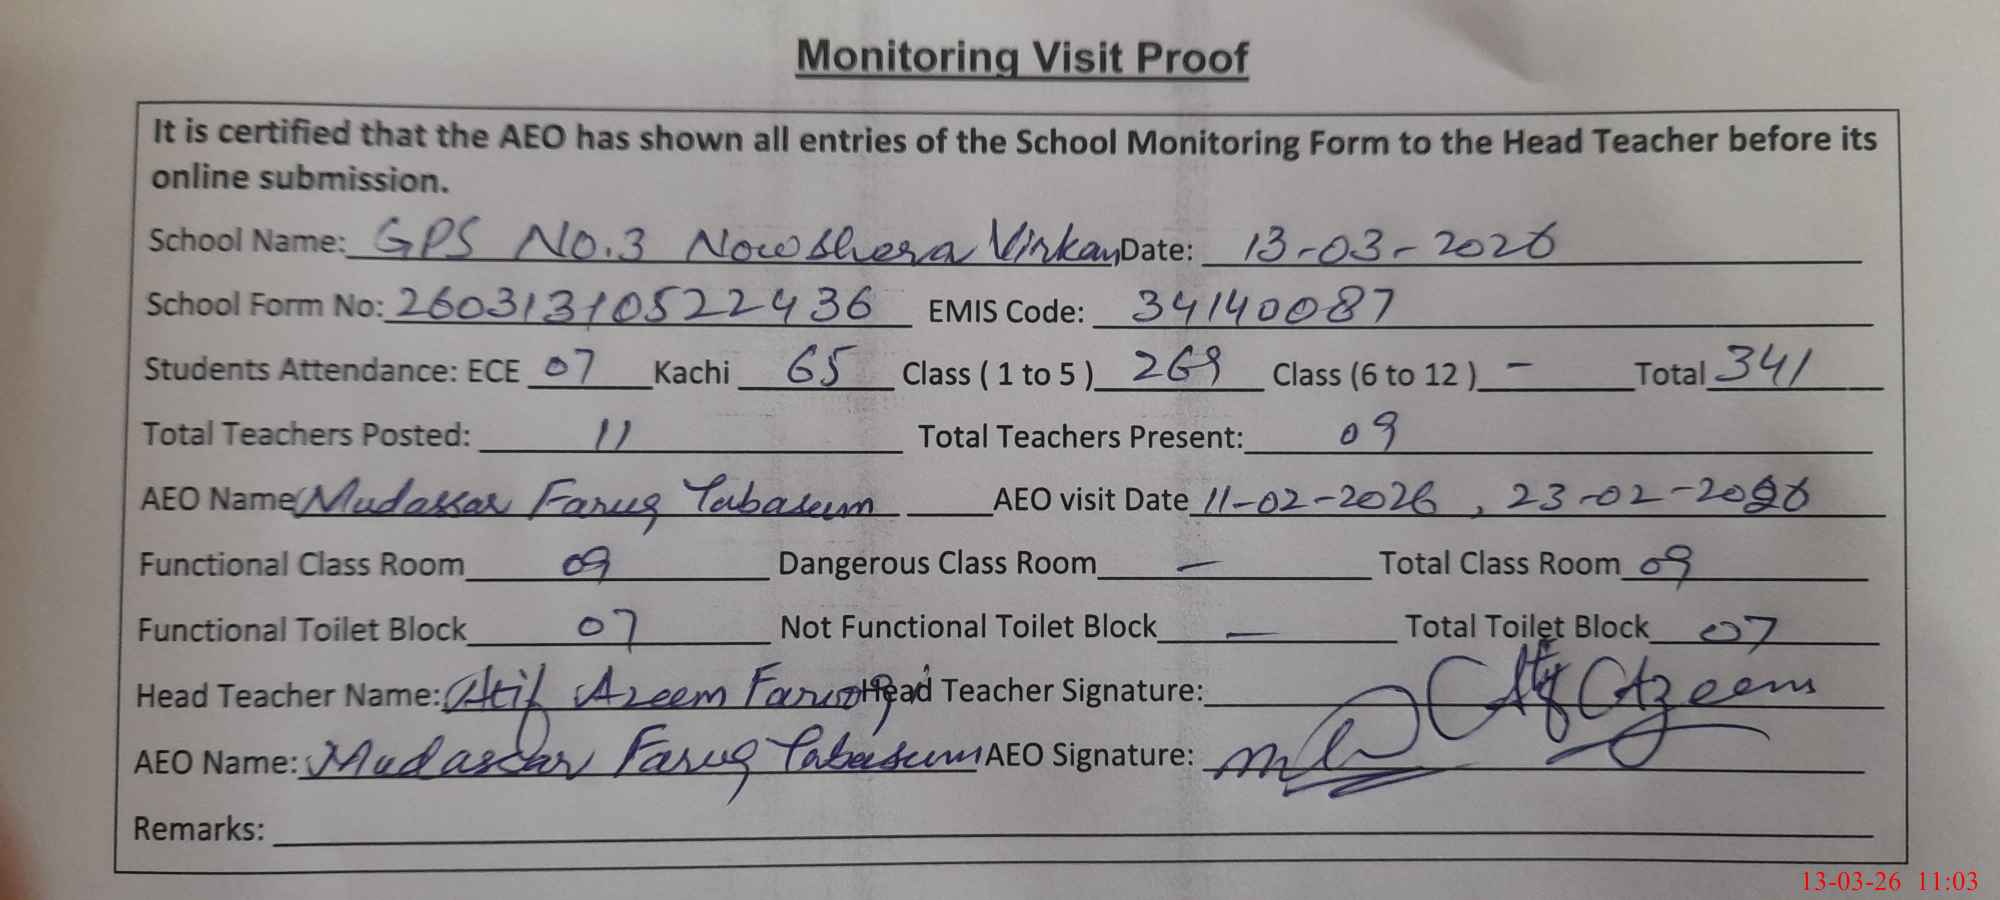 Monitoring Visit Proof
It is certified that the AEO has shown all entries of the School Monitoring Form to the Head Teacher before its
online submission.
School Name: GPS No.3 Nowshera Virkan Date: 13-03-2026
School Form No: 260313105222436 EMIS Code: 34140087
Students Attendance: ECE 07 Kachi 65 Class ( 1 to 5 ) 269 Class (6 to 12 ) - Total 341
Total Teachers Posted: 11 Total Teachers Present: 09
AEO Name Mudassar Faruq Tabasum AEO visit Date 11-02-2026 , 23-02-2026
Functional Class Room 09 Dangerous Class Room - Total Class Room 09
Functional Toilet Block 07 Not Functional Toilet Block - Total Toilet Block 07
Head Teacher Name: Atif Azeem Farooqi Head Teacher Signature: Atif Azeem
AEO Name: Mudassar Faruq Tabasum AEO Signature:
Remarks:
13-03-26 11:03